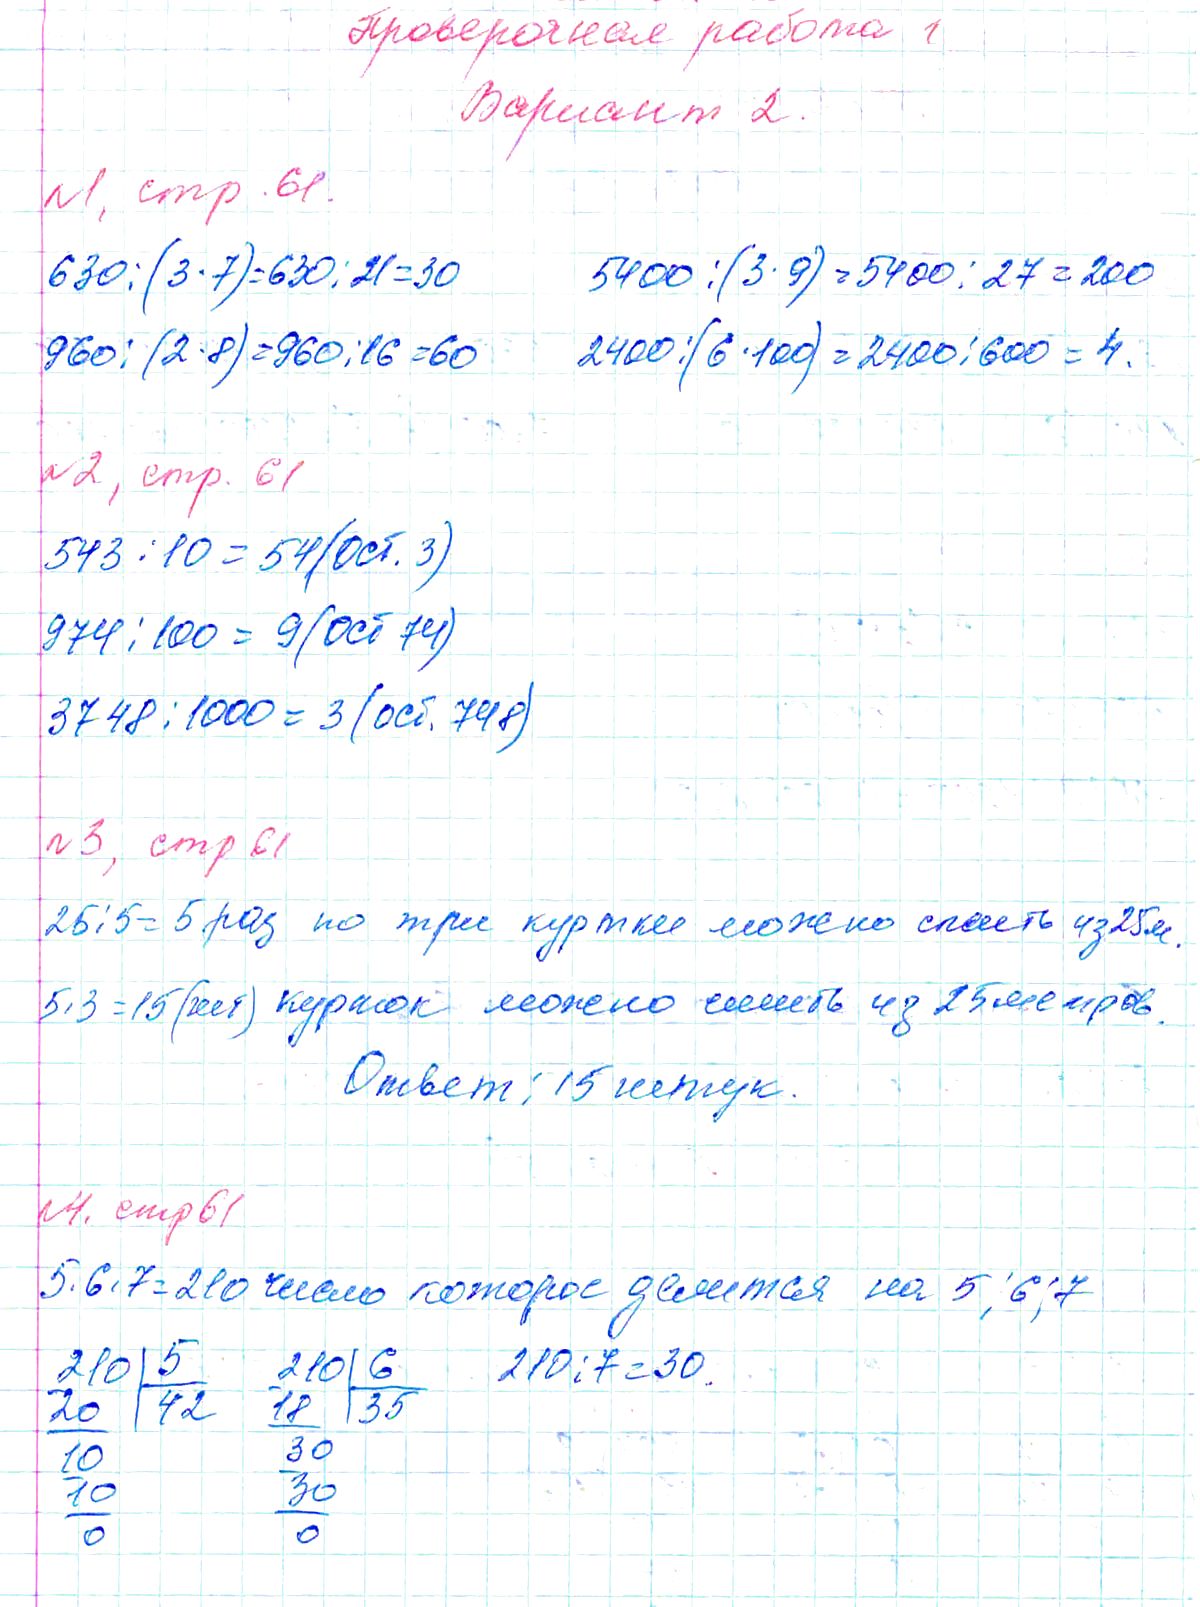 Проверочная работа 1
Вариант 2.
№1, стр. 61.
630:(3·7)=630:21=30 5400:(3·9)=5400:27=200
960:(2·8)=960:16=60 2400:(6·100)=2400:600=4.
№2, стр. 61
543:10=54(ост. 3)
974:100=9(ост 74)
3748:1000=3(ост. 748)
№3, стр 61
25:5=5 раз по три куртки можно сшить из 25 м.
5·3=15(шт) курток можно сшить из 25 метров.
Ответ: 15 штук.
№4. стр 61
5·6·7=210 число которое делится на 5; 6; 7
210 5 210 6 210:7=30.
20 42 18 35
10 30
10 30
0 0